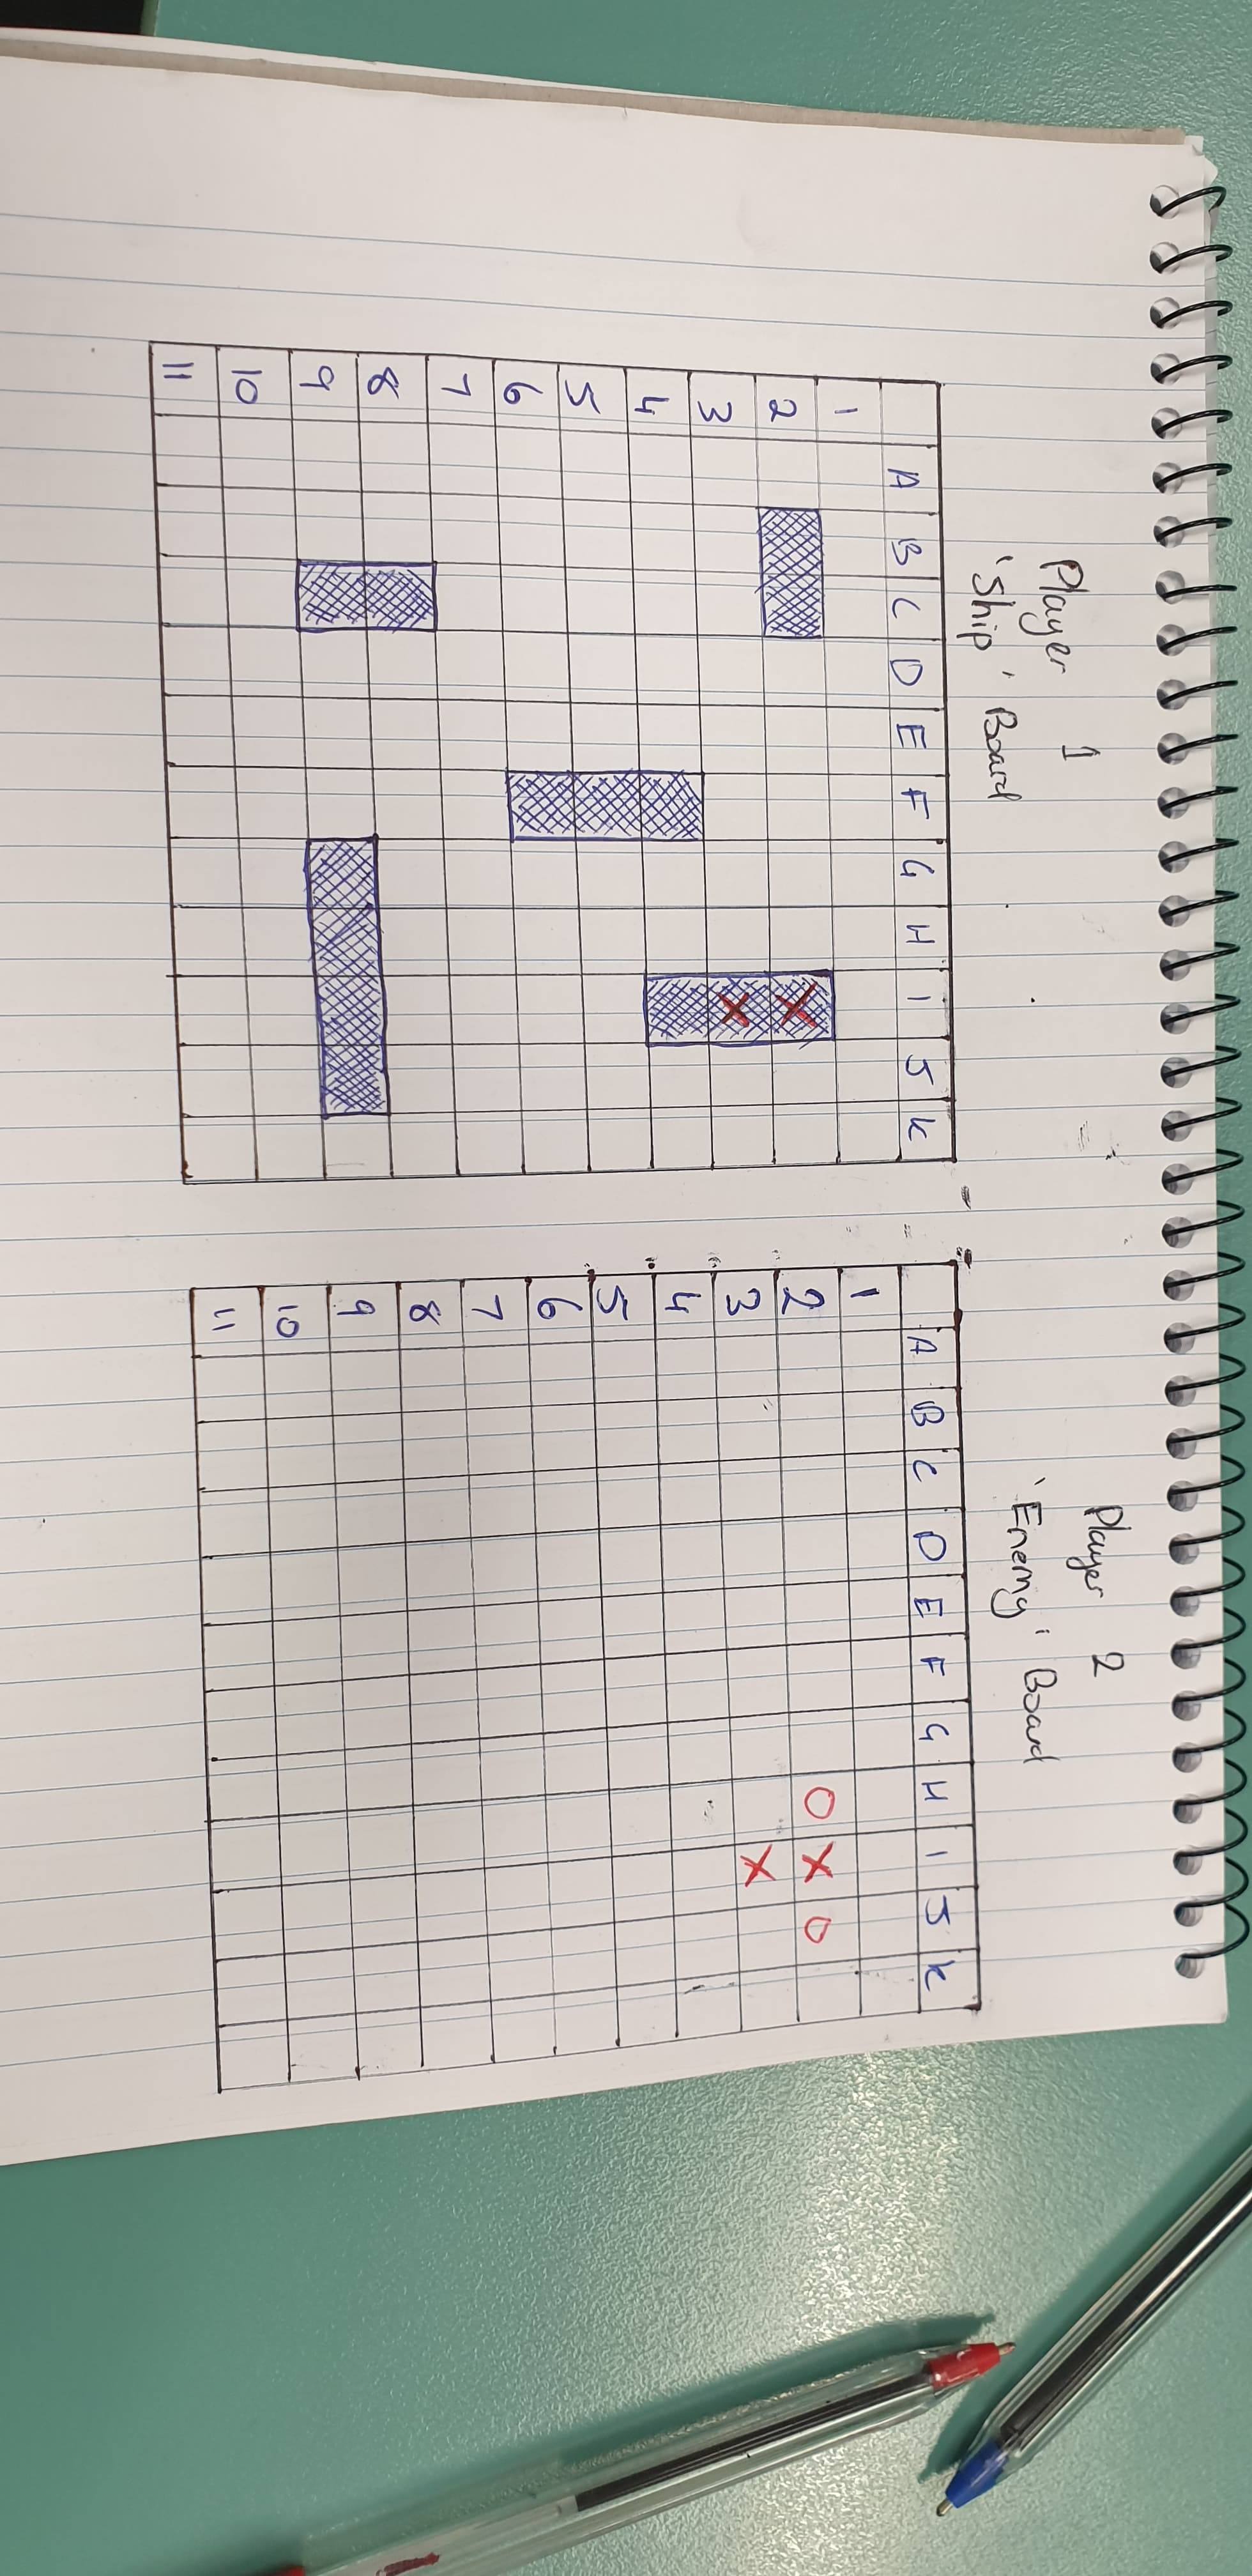 Player 1
'Ship' Board
A B C D E F G H I J K
1
2
X
3
X
4
5
6
7
8
9
10
11
Player 2
'Enemy' Board
A B C D E F G H I J K
1
2 O X O
3 X
4
5
6
7
8
9
10
11